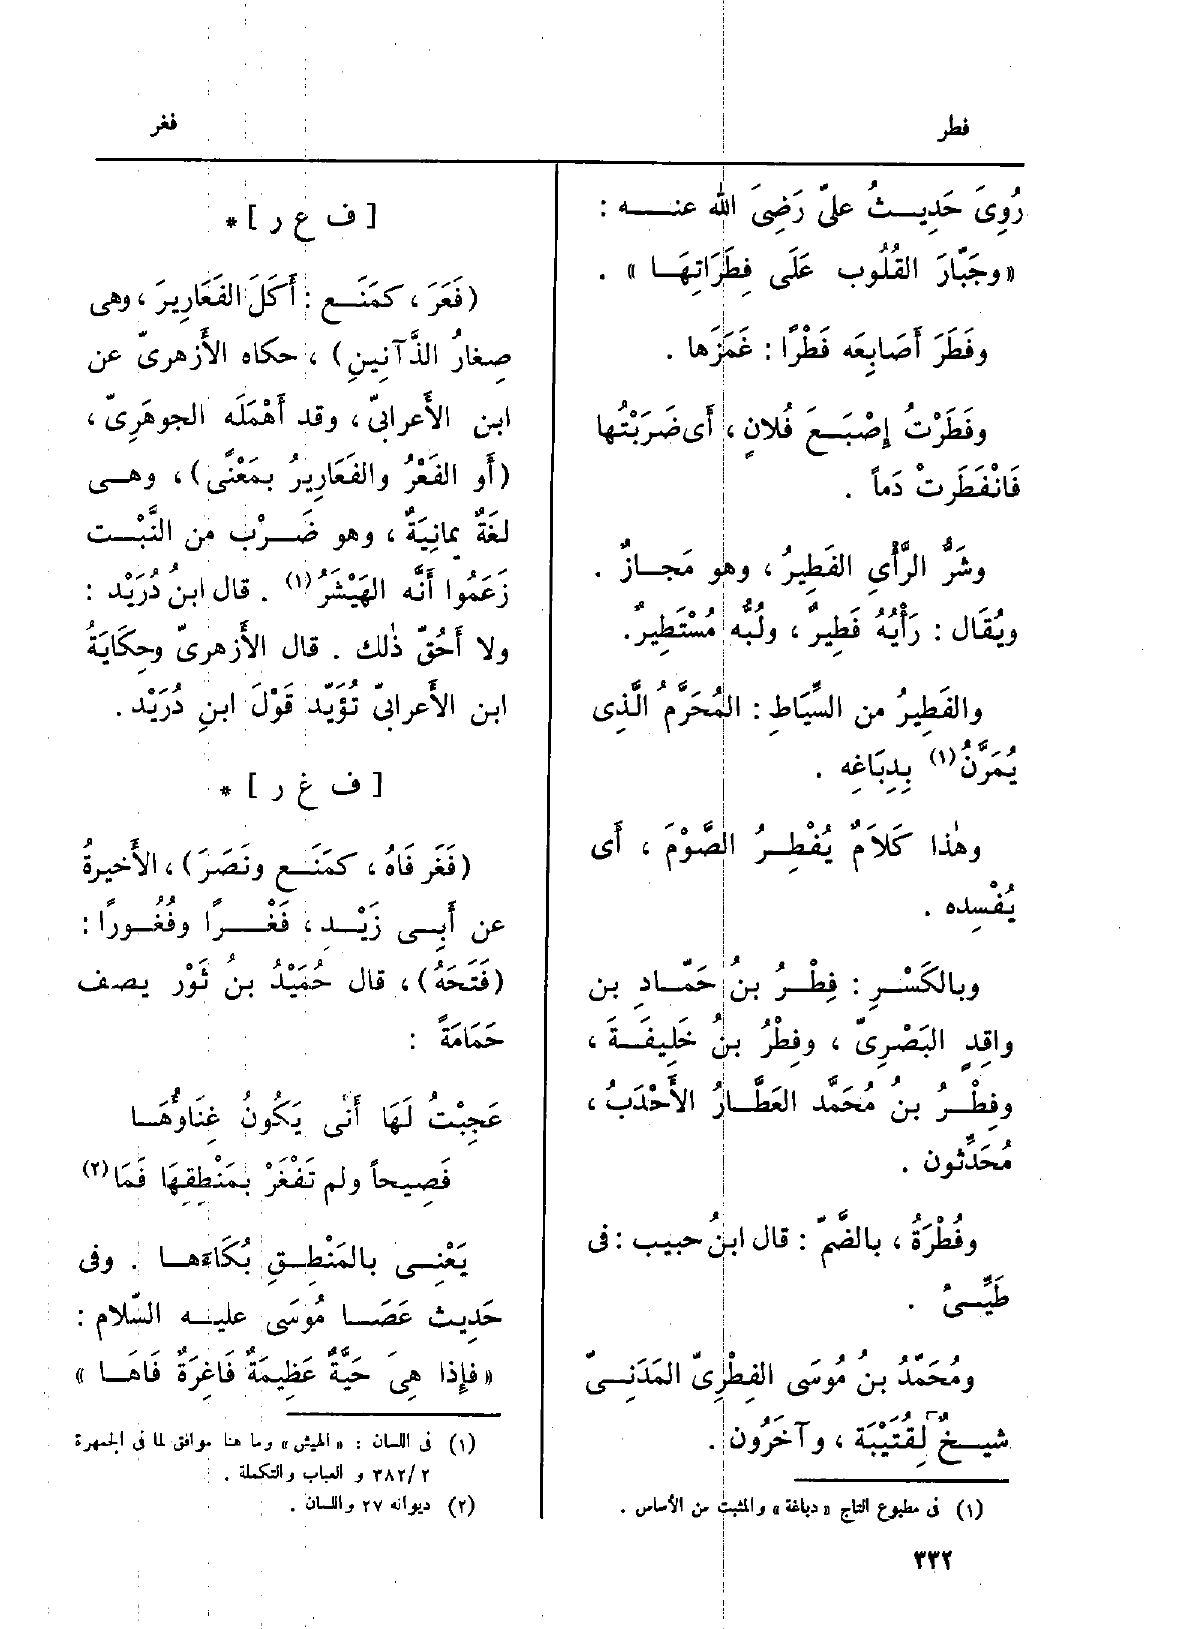 فطر
فغر
رُوِىَ حَدِيــثُ علىّ رَضِىَ الله عنــــه :
«وجَبّارَ القُلُوب عَلَى فِطَرَاتِهَــا » .
وفَطَرَ أَصَابِعَه فَطْرًا : غَمَزَها .
وفَطَرْتُ إِصْبَــعَ فُلانٍ ، أَى ضَرَبْتُها
فَانْفَطَرتْ دَماً .
وشَرُّ الرَّأْىِ الفَطِيرُ ، وهُو مَجــازٌ .
ويُقَال : رَأْيُهُ فَطِيرٌ ، ولُبُّه مُسْتَطِيرٌ .
والفَطِيرُ من السِّيَاطِ : المُحَرَّمُ الَّذِى
يُمَرَّنُ(١) بِدِبَاغِه .
وهٰذا كَلَامٌ يُفْطِــرُ الصَّوْمَ ، أَى
يُفْسِده .
وبالكَسْــرِ : فِطْــرُ بنُ حَمّــادِ بن
واقِدٍ البَصْرِىّ ، وفِطْرُ بنُ خَلِيفَــةَ ،
وفِطْــرُ بنُ مُحَمَّد العَطَّــارُ الأَحْدَبُ ،
مُحَدِّثُون .
وفُطْرَةُ ، بالضَّمّ : قال ابنُ حبيب : فى
طَيِّــىُ .
ومُحَمَّدُ بنُ مُوسَى الفِطْرِىّ المَدَنِــىّ
شيــخٌ لِقُتَيْبَة ، وآخَرُون .
(١) فى مطبوع التاج «دباغة» والمثبت من الأساس .
[ ف ع ر ] *
(فَعَرَ ، كمَنَــع : أَكَلَ الفَعَارِيرَ ، وهى
صِغارُ الذَّآنِينِ) ، حكاه الأَزهرىّ عن
ابن الأَعرابىّ ، وقد أَهْمَلَه الجوهَرِىّ ،
(أَو الفَعْرُ والفَعَارِيرُ بمَعْنًى) ، وهــى
لغَةٌ يمانِيَةٌ ، وهو ضَــرْب من النَّبْــت
زَعَمُوا أَنَّه الهَيْشَرُ(١) . قال ابنُ دُرَيْد :
ولا أَحُقّ ذٰلك . قال الأَزهرىّ وحِكَايَةُ
ابن الأَعرابىّ تُؤَيّد قَوْلَ ابنِ دُرَيْد .
[ ف غ ر ] *
(فَغَر فَاهُ ، كمَنَــع ونَصَرَ) ، الأَخيرةُ
عن أَبِــى زَيْــد ، فَغْــــرًا وفُغُــورًا :
(فَتَحَهُ) ، قال حُمَيْدُ بنُ ثَوْر يصف
حَمَامَةً :
عَجِبْتُ لَهَا أَنَّى يَكُونُ غِنَاؤُهَــا
فَصِيحاً ولم تَفْغَرْ بمَنْطِقِهَا فَمَا(٢)
يَعْنِــى بالمَنْطِــقِ بُكَاءَهــا . وفى
حَدِيث عَصَــا مُوسَى عليــه السَّلام :
«فإِذا هِىَ حَيَّةٌ عَظِيمَةٌ فَاغِرَةٌ فَاهَــا »
(١) فى اللسان : «الهيش» وما هنا موافق لما فى الجمهرة
٣٨٢/٢ و العباب والتكملة .
(٢) ديوانه ٢٧ واللسان .
٣٣٢